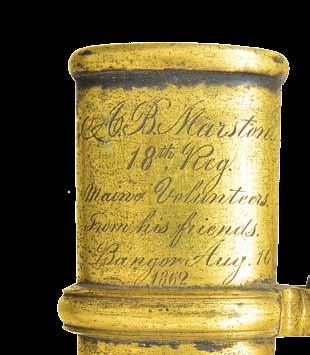 C. B. Marston.
18th Reg.
Maine Volunteers,
From his friends.
Bangor Aug. 16
1862